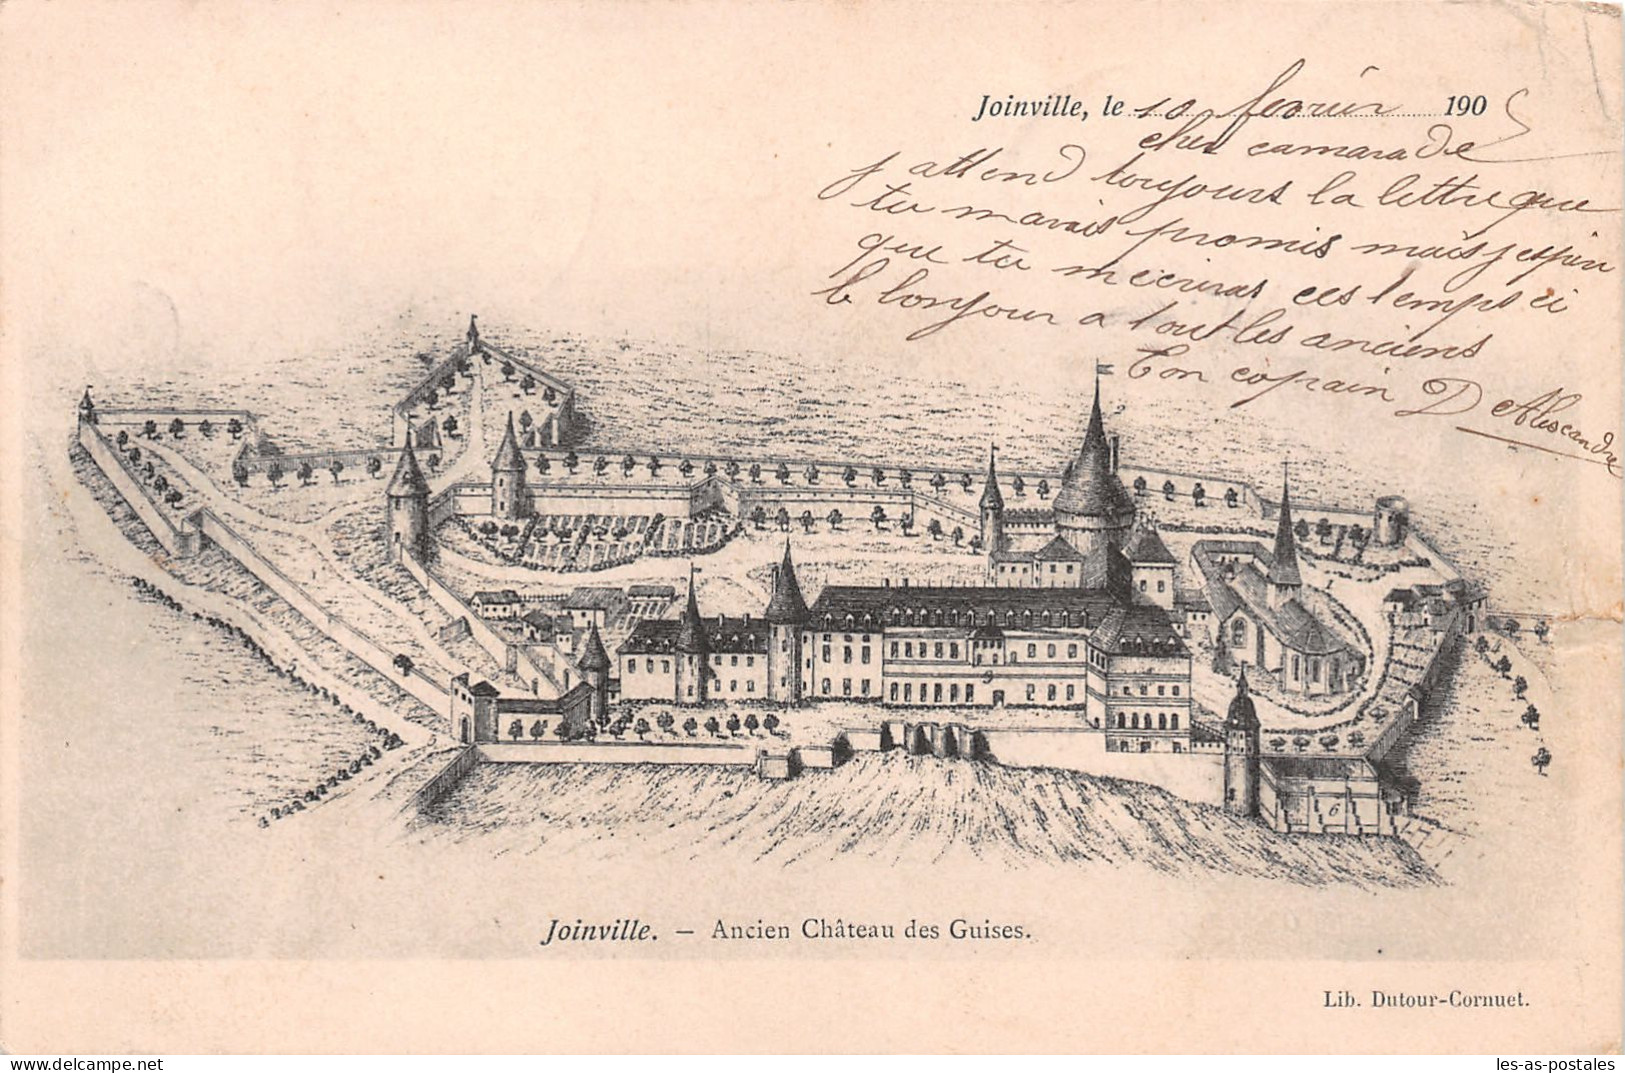 Joinville, le 10 fevrier 1905
cher camarade
j attend toujours la lettre que
tu mavais promis mais jespère
que tu mecriras ces temps ci
le bonjour a tout les anciens
Ton copain D Alescandre
2
1
3
6
Joinville. — Ancien Château des Guises.
Lib. Dutour-Cornuet.
les-as-postales